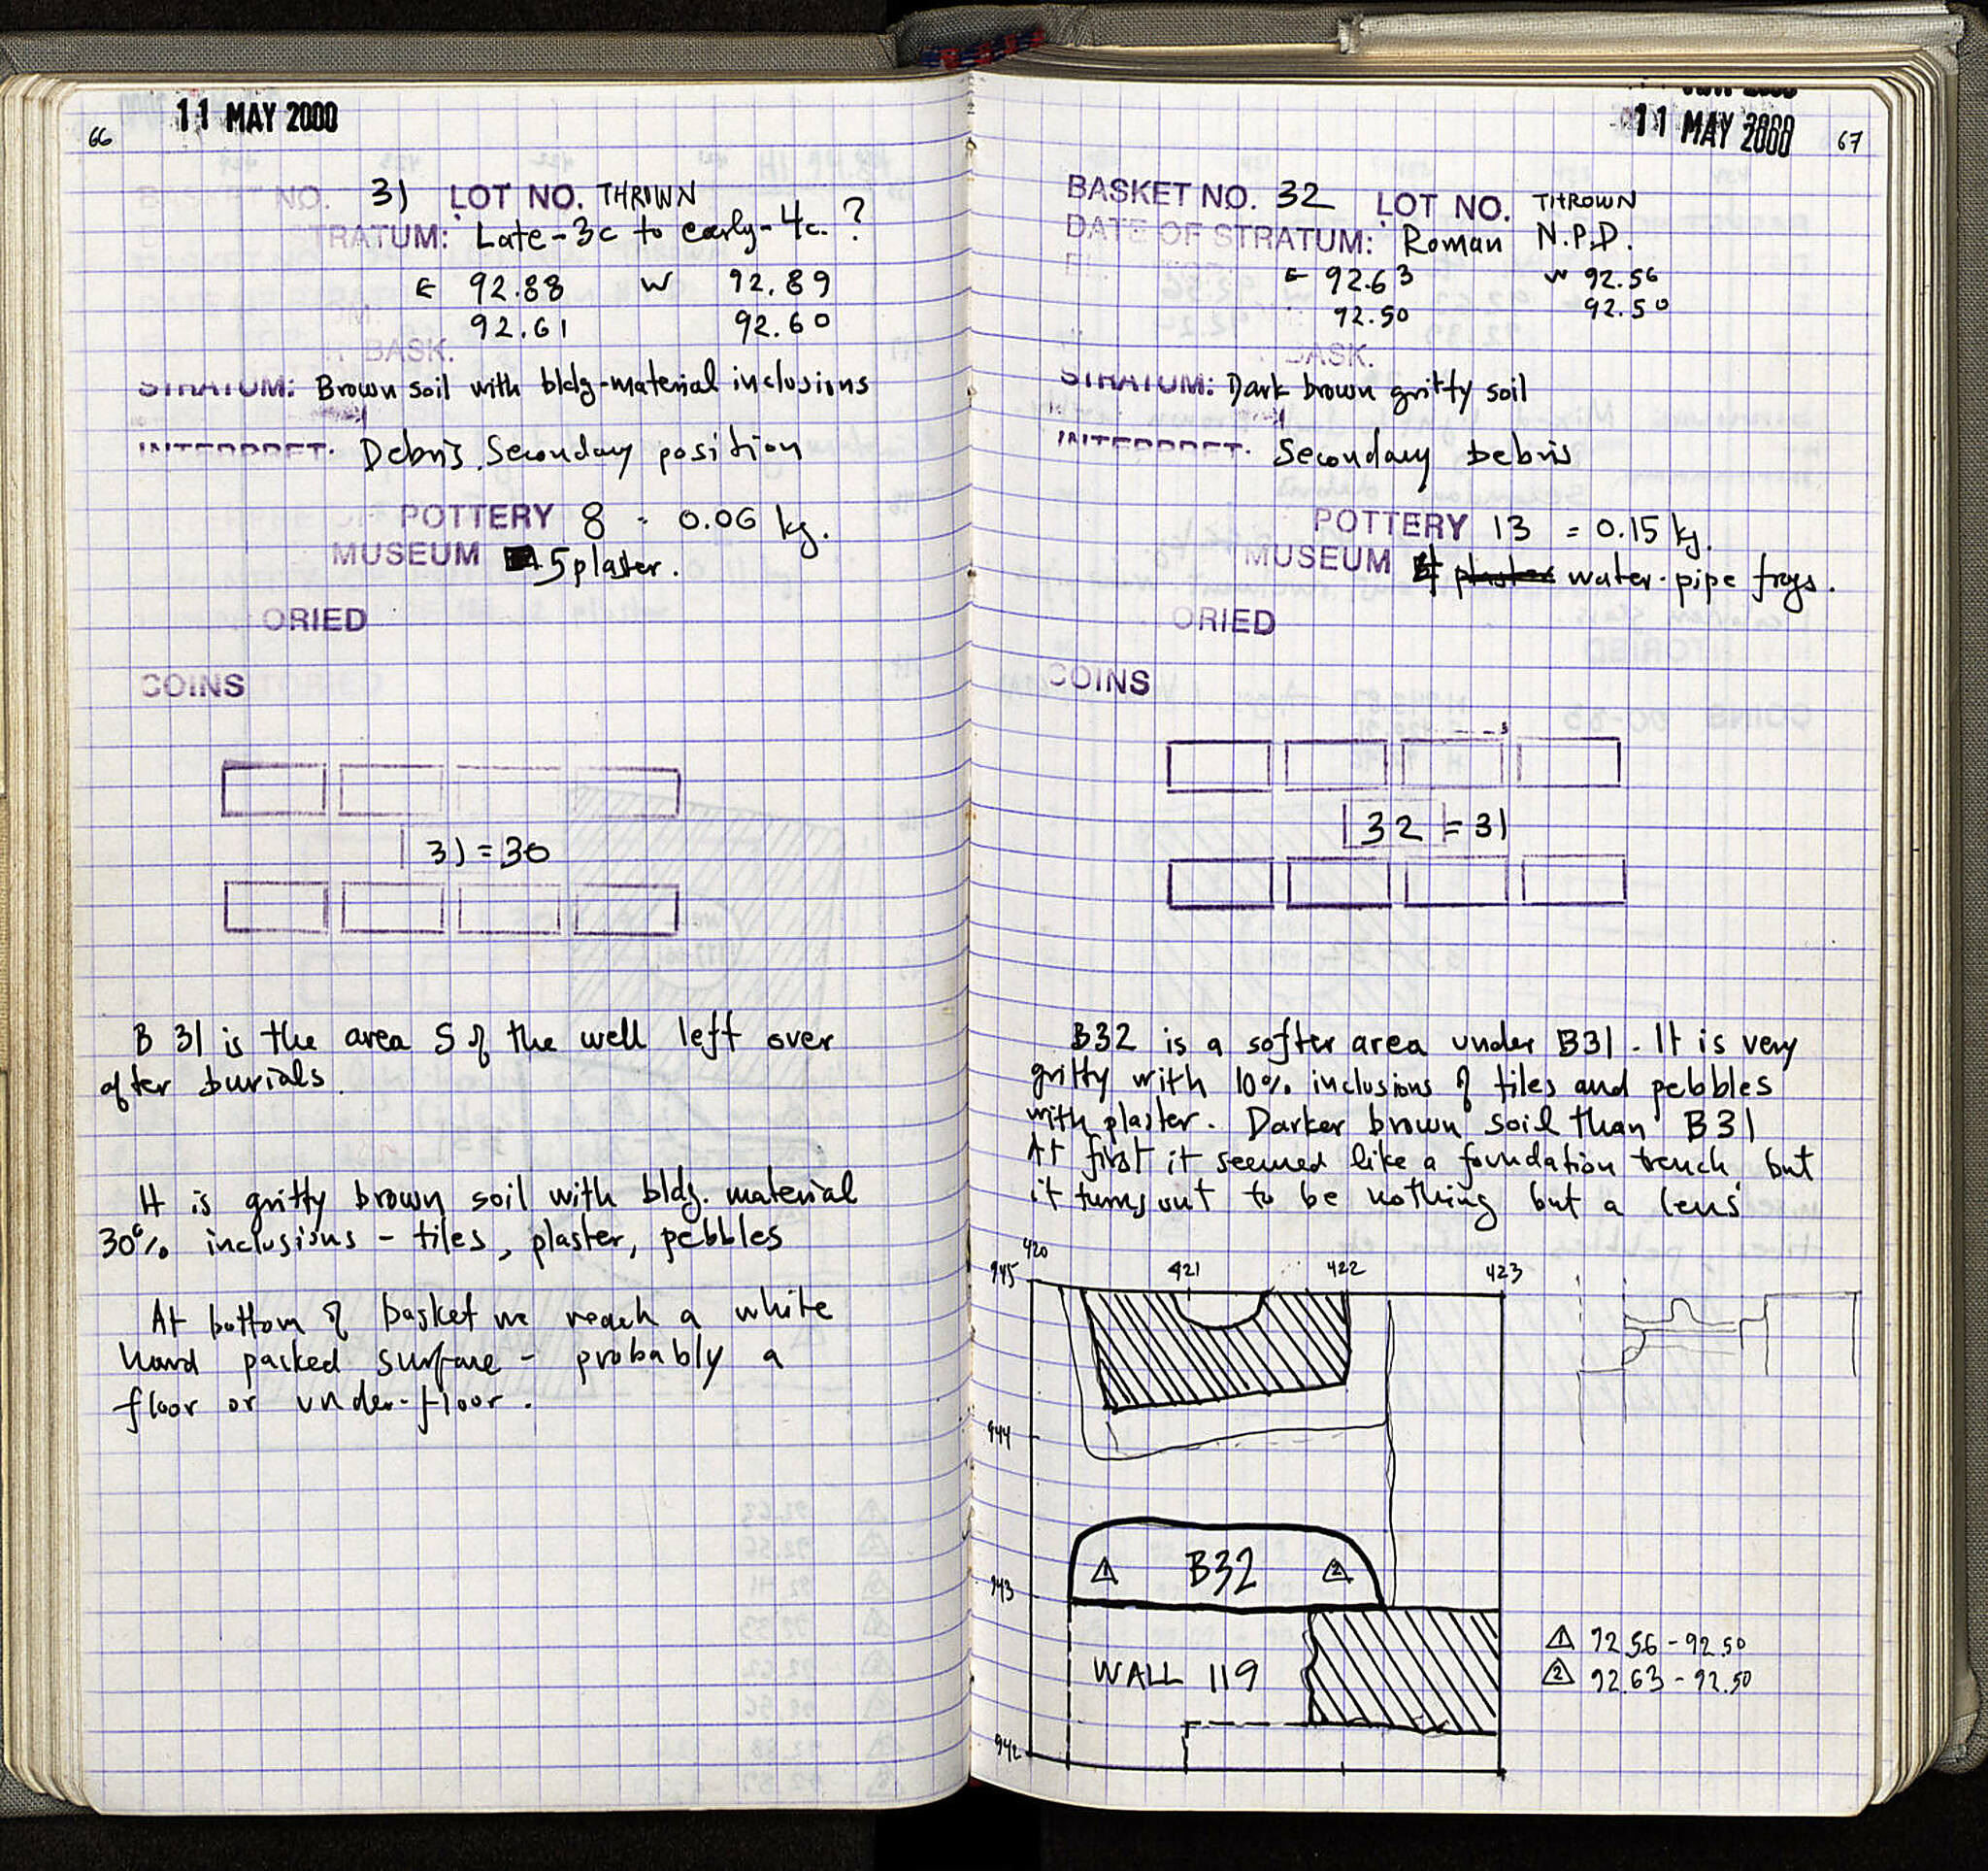 11 MAY 2000
66
BASKET NO. 31 LOT NO. THROWN
TRATUM: Late-3c to early-4c. ?
E 92.88 W 92.89
92.61 92.60
BASK.
STRATUM: Brown soil with bldg-material inclusions
INTERPRET: Debris. Secondary position
POTTERY 8 = 0.06 kg.
MUSEUM 5 plaster.
ORIED
COINS
31 = 30
B 31 is the area S of the well left over
after burials.
It is gritty brown soil with bldg. material
30% inclusions - tiles, plaster, pebbles
At bottom of basket we reach a white
hard packed surface - probably a
floor or under-floor.
11 MAY 2000 67
BASKET NO. 32 LOT NO. THROWN
DATE OF STRATUM: Roman N.P.D.
EL. E 92.63 W 92.56
92.50 92.50
BASK.
STRATUM: Dark brown gritty soil
INTERPRET: Secondary Debris
POTTERY 13 = 0.15 kg.
MUSEUM plaster water-pipe frags.
ORIED
COINS
32 = 31
B32 is a softer area under B31. It is very
gritty with 10% inclusions of tiles and pebbles
with plaster. Darker brown soil than B31
At first it seemed like a foundation trench but
it turns out to be nothing but a lens
420
945 421 422 423
944
1 B32 2
943
WALL 119
1 92.56 - 92.50
2 92.63 - 92.50
942